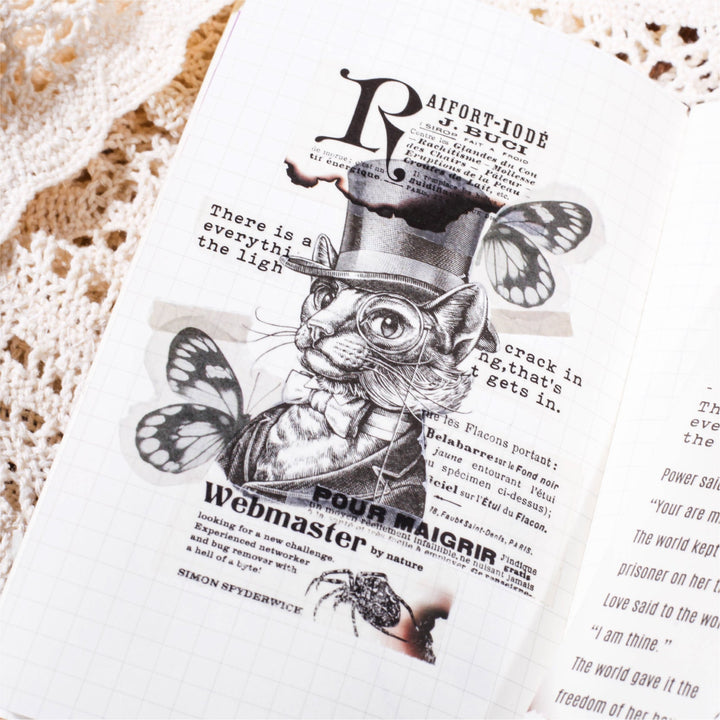 RAIFORT-IODÉ
J. BUCI
SIROP FAIT A FROID
Contre les Glandes du Cou
Rachitisme - Mollesse
des Chairs - Pâleur
Eruptions de la Peau
Croûtes de Lait, etc.
tif énergique.
PARIS
There is a crack in
everything, that's
the ligh t gets in.
que les Flacons portant:
Belabarre sur le Fond noir
jaune entourant l'étui
spécimen ci-dessus);
ciel sur l'Étui du Flacon.
Faubg Saint-Denis, PARIS.
POUR MAIGRIR
J'indique
un moyen réellement infaillible, ne nuisant jamais
gratis
Webmaster by nature
looking for a new challenge.
Experienced networker
and bug remover with
a hell of a byte!
SIMON SPYDERWICK
Th
eve
the
Power said
"You are m
The world kept
prisoner on her t
Love said to the wo
"I am thine."
The world gave it the
freedom of her ho